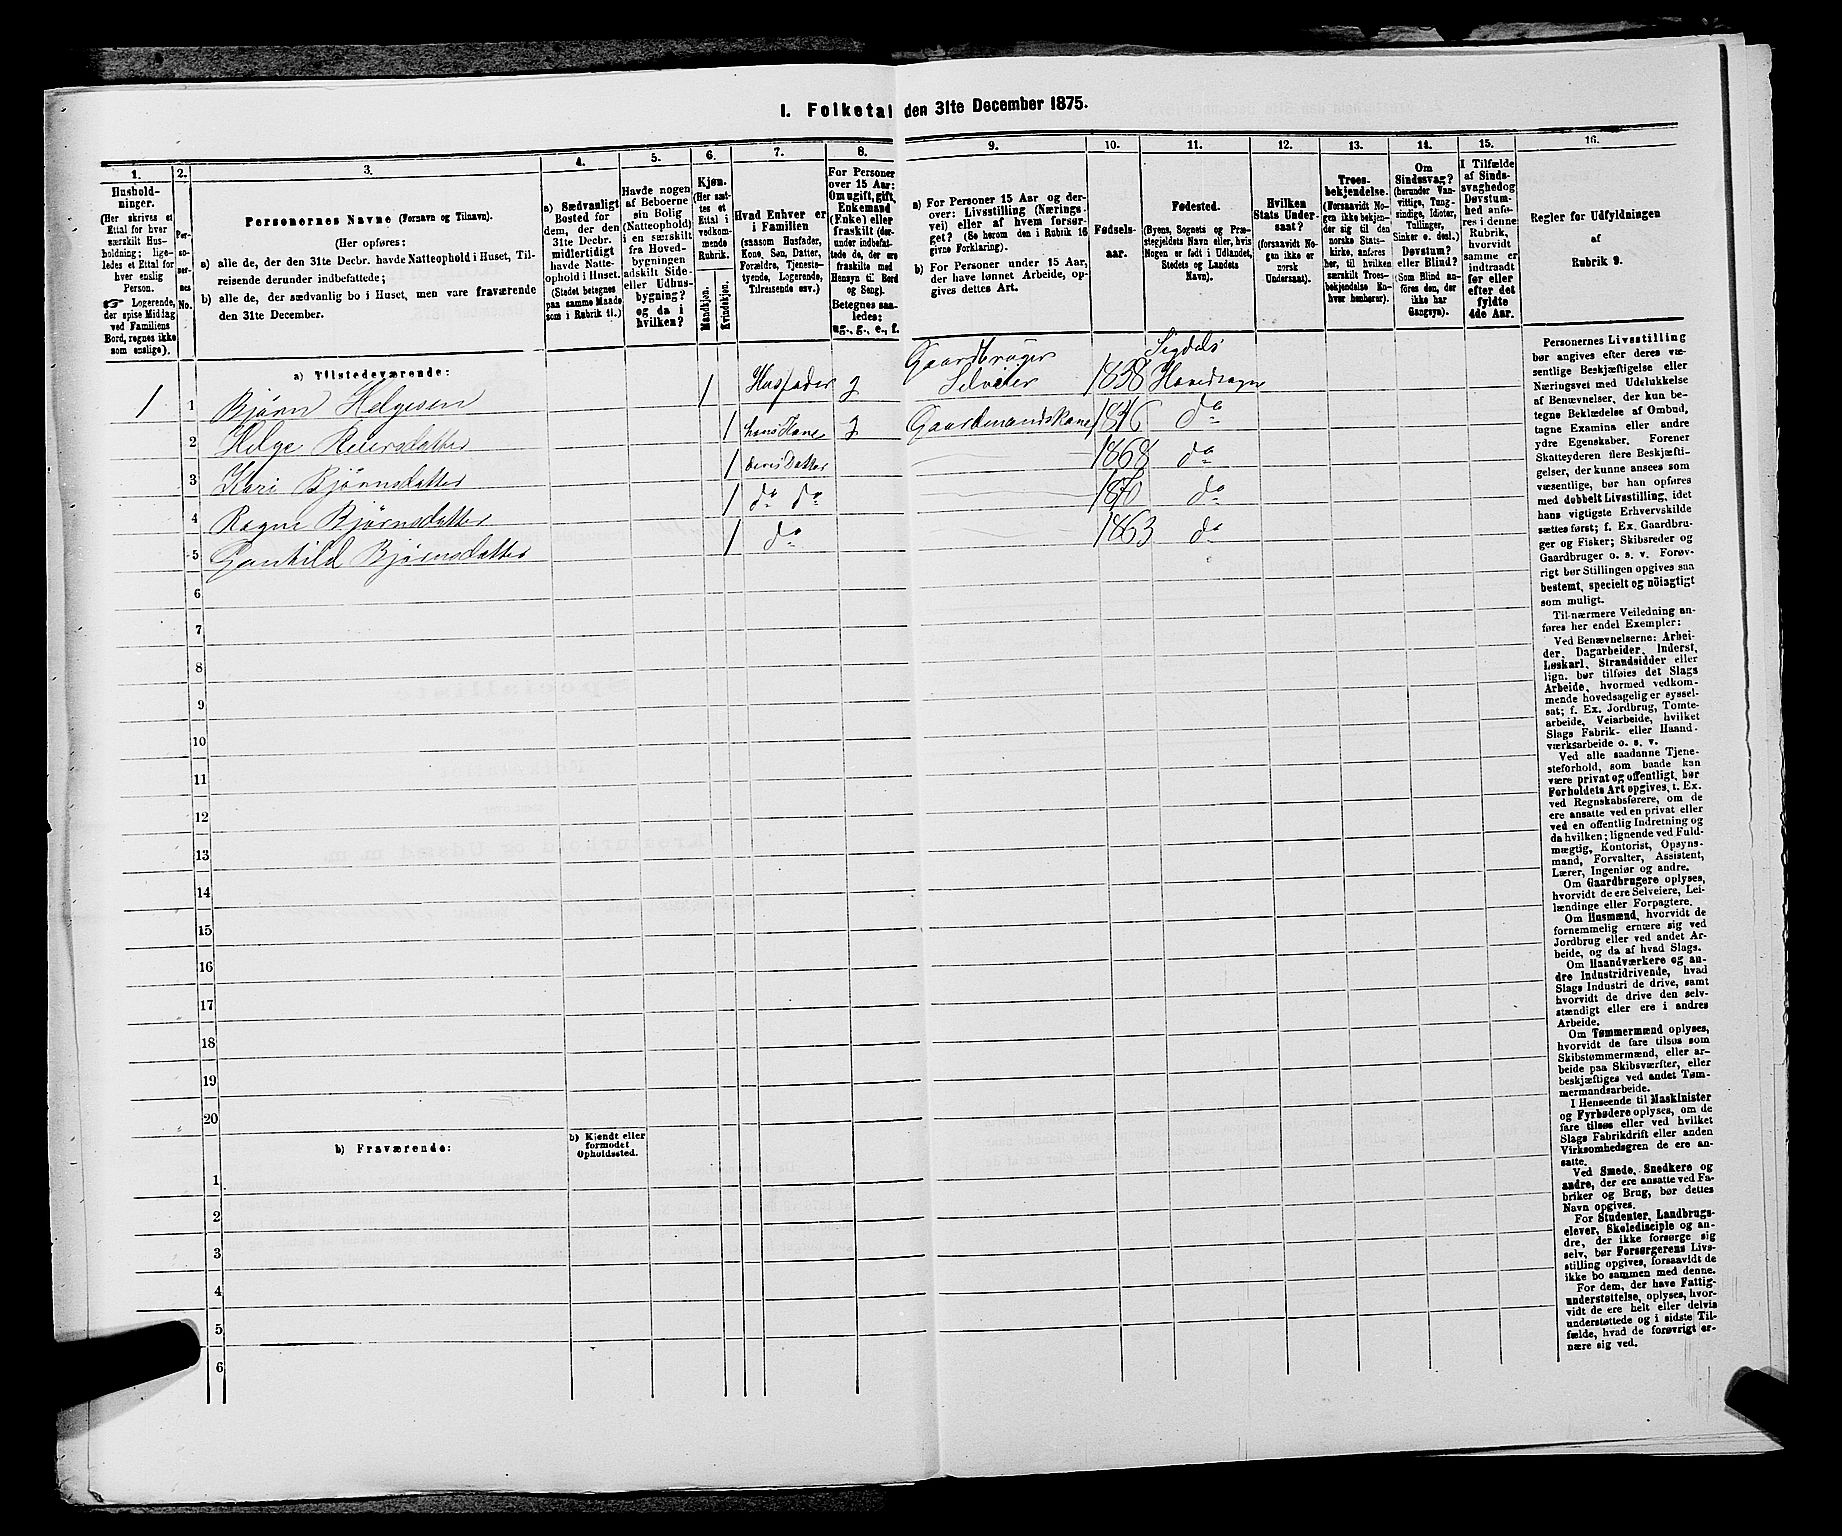 I. Folketal den 31te December 1875.
1.
2.
3.
4.
5.
6.
7.
8.
9.
10.
11.
12.
13.
14.
15.
16.
Hushold-
ninger.
(Her skrives et
Ettal for hver
særskilt Hus-
holdning; lige-
ledes et Ettal for
hver enslig
Person.
☞ Logerende,
der spise Middag
ved Familiens
Bord, regnes ikke
som enslige).
Per-
soner-
nes
No.
Personernes Navne (Fornavn og Tilnavn).
(Her opføres:
a) alle de, der den 31te Decbr. havde Natteophold i Huset, Til-
reisende derunder indbefattede;
b) alle de, der sædvanlig bo i Huset, men vare fraværende
den 31te December.
a) Sædvanligt
Bosted for
dem, der den
31te Decbr.
midlertidigt
havde Natte-
ophold i Huset.
(Stedet betegnes
paa samme Maade
som i Rubrik 11.)
Havde nogen
af Beboerne
sin Bolig
(Natteophold)
i en særskilt
fra Hoved-
bygningen
adskilt Side-
eller Udhus-
bygning?
og da i
hvilken?
Kjøn.
(Her sæt-
tes et
Ettal i
vedkom-
mende
Rubrik.
Mandkjøn.
Kvindekjøn.
Hvad Enhver er
i Familien
(saasom Husfader,
Kone, Søn, Datter,
Forældre, Tjeneste-
tyende, Logerende,
Tilreisende osv.)
For Personer
over 15 Aar:
Om ugift, gift,
Enkemand
(Enke) eller
fraskilt (der-
under indbefat-
tede de, der ere
fraskilte med
Hensyn til Bord
og Seng).
Betegnes saa-
ledes:
ug., g., e., f.
a) For Personer 15 Aar og der-
over: Livsstilling (Nærings-
vei) eller af hvem forsør-
get? (Se herom den i Rubrik 16
givne Forklaring).
b) For Personer under 15 Aar,
der have lønnet Arbeide, op-
gives dettes Art.
Fødsels-
aar.
Fødested.
(Byens, Sognets og Præ-
stegjeldets Navn eller, hvis
Nogen er født i Udlandet,
Stedets og Landets
Navn).
Hvilken
Stats Under-
saat?
(forsaavidt No-
gen ikke er
norsk
Undersaat).
Troes-
bekjendelse.
(Forsaavidt No-
gen ikke bekjen-
der sig til den
norske Stats-
kirke, anføres
her, til hvilken
særskilt Troes-
bekjendelse En-
hver henhører).
Om
Sindssvag?
(herunder Van-
vittige, Tung-
sindige, Idioter,
Tullinger,
Sinker o. desl.)
Døvstum?
eller Blind?
(Som Blind an-
føres den, der
ikke har
Gangsyn).
I Tilfælde
af Sinds-
svaghed og
Døvstum-
hed anfø-
res i denne
Rubrik,
hvorvidt
samme er
indtraadt
før eller
efter det
fyldte
4de Aar.
Regler for Udfyldningen
af
Rubrik 9.
a) Tilstedeværende:
1 1 Bjørn Helgesen 1 Husfader g Gaardbruger Selveier 1838 Sigdals Hovedsogn
2 Helge Heiersdatter 1 hans Kone g Gaardmandskone 1846 do
3 Kari Bjørnsdatter 1 deres Datter 1868 do
4 Ragne Bjørnsdatter 1 do do 1870 do
5 Gunhild Bjørnsdatter 1 do 1863 do
6
7
8
9
10
11
12
13
14
15
16
17
18
19
20
b) Fraværende:
b) Kjendt eller
formodet
Opholdssted.
1
2
3
4
5
6
Personernes Livsstilling
bør angives efter deres væ-
sentlige Beskjæftigelse eller
Næringsvei med Udelukkelse
af Benævnelser, der kun be-
tegne Beklædelse af Ombud,
tagne Examina eller andre
ydre Egenskaber. Forener
Skatteyderen flere Beskjæfti-
gelser, der kunne ansees som
væsentlige, bør han opføres
med dobbelt Livsstilling, idet
hans vigtigste Erhvervskilde
sættes først; f. Ex. Gaardbru-
ger og Fisker; Skibsreder og
Gaardbruger o. s. v. Forøv-
rigt bør Stillingen opgives saa
bestemt, specielt og nöiagtigt
som muligt.
Til nærmere Veiledning an-
føres her endel Exempler:
Ved Benævnelserne: Arbei-
der, Dagarbeider, Inderst,
Løskarl, Strandsidder eller
lign. bør tilføies det Slags
Arbeide, hvormed vedkom-
mende hovedsagelig er syssel-
sat; f. Ex. Jordbrug, Tomte-
arbeide, Veiarbeide, hvilket
Slags Fabrik- eller Haand-
værksarbeide o. s. v.
Ved alle saadanne Tjene-
steforhold, som baade kan
være privat og offentligt, bør
Forholdets Art opgives, t. Ex.
ved Regnskabsførere, om de
ere ansatte ved en privat eller
ved en offentlig Indretning og
da hvilken; lignende ved Fuld-
mægtig, Kontorist, Opsyns-
mand, Forvalter, Assistent,
Lærer, Ingeniør og andre.
Om Gaardbrugere oplyses,
hvorvidt de ere Selveiere, Lei-
lændinge eller Forpagtere.
Om Husmænd, hvorvidt de
fornemmelig ernære sig ved
Jordbrug eller ved andet Ar-
beide, og da af hvad Slags.
Om Haandværkere og an-
dre Industridrivende, hvad
Slags Industri de drive, samt
hvorvidt de drive den selv-
stændigt eller ere i andres
Arbeide.
Om Tømmermænd oplyses,
hvorvidt de fare tilsøs som
Skibstømmermænd, eller ar-
beide paa Skibsværfter, eller
beskjæftiges ved andet Tøm-
mermandsarbeide.
I Henseende til Maskinister
og Fyrbødere oplyses, om de
fare tilsøs eller ved hvilket
Slags Fabrikdrift eller anden
Virksomhedsgren de ere an-
satte.
Ved Smede, Snedkere og
andre, der ere ansatte ved Fa-
briker og Brug, bør dettes
Navn opgives.
For Studenter, Landbrugs-
elever, Skoledisciple og an-
dre, der ikke forsørge sig
selv, bør Forsørgerens Livs-
stilling opgives, forsaavidt de
ikke bo sammen med denne.
For dem, der have Fattig-
understøttelse, oplyses, hvor-
vidt de ere helt eller delvis
understøttede og i sidste Til-
fælde, hvad de forøvrigt er-
nære sig ved.